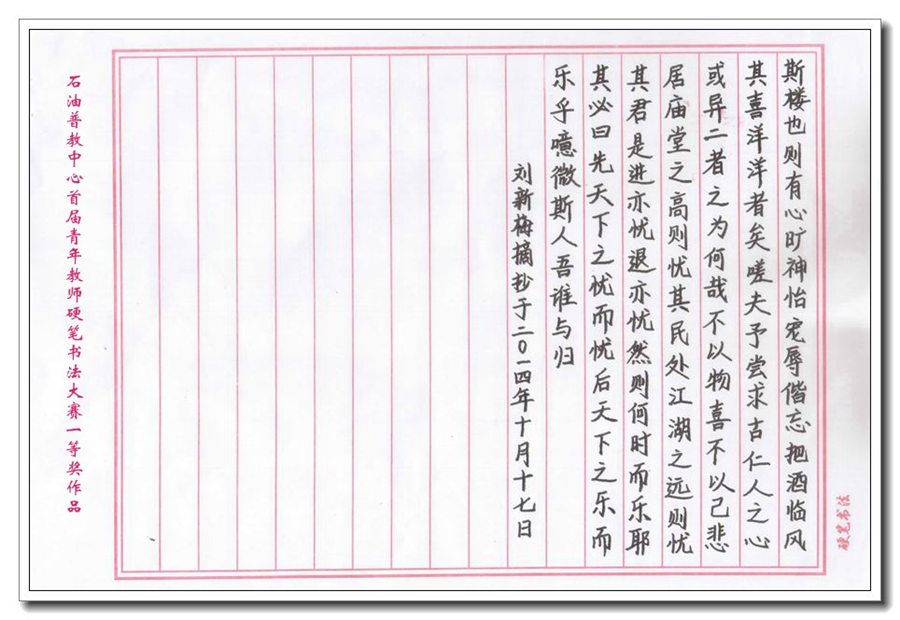 硬笔书法
斯楼也则有心旷神怡宠辱偕忘把酒临风
其喜洋洋者矣嗟夫予尝求古仁人之心
或异二者之为何哉不以物喜不以己悲
居庙堂之高则忧其民处江湖之远则忧
其君是进亦忧退亦忧然则何时而乐耶
其必曰先天下之忧而忧后天下之乐而
乐乎噫微斯人吾谁与归
刘新梅摘抄于二〇一四年十月十七日
石油普教中心首届青年教师硬笔书法大赛一等奖作品